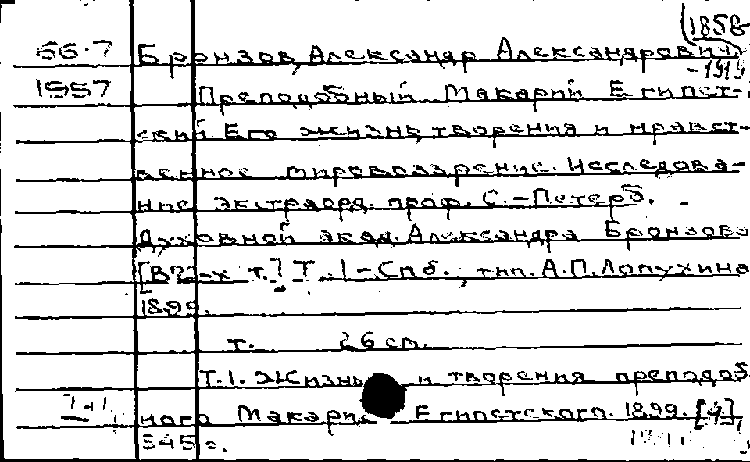 (1858-
66.7 Бронзов, Александр Александрович
-1919
1957 Преподобный Макарий Египет-
ский Его жизнь, творения и нравст-
венное мировоззрение. Исследова-
ние экстраорд. проф. С.-Петерб.
Духовной акад. Александра Бронзова
[В 2-х т.] Т. 1- Спб., тип. А.П. Лопухина
1899.
т. 26 см.
Т.1. Жизнь и творения преподоб
ного Макария Египетского. 1899. [4]
545 с.